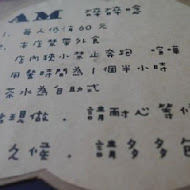 AM 碎碎念
1. 每人低消60元
2. 本店禁帶外食
店內狹小禁上奔跑、喧嘩
用餐時間為1個半小時
茶水為自助式
現做，請耐心等
久候，請多多包